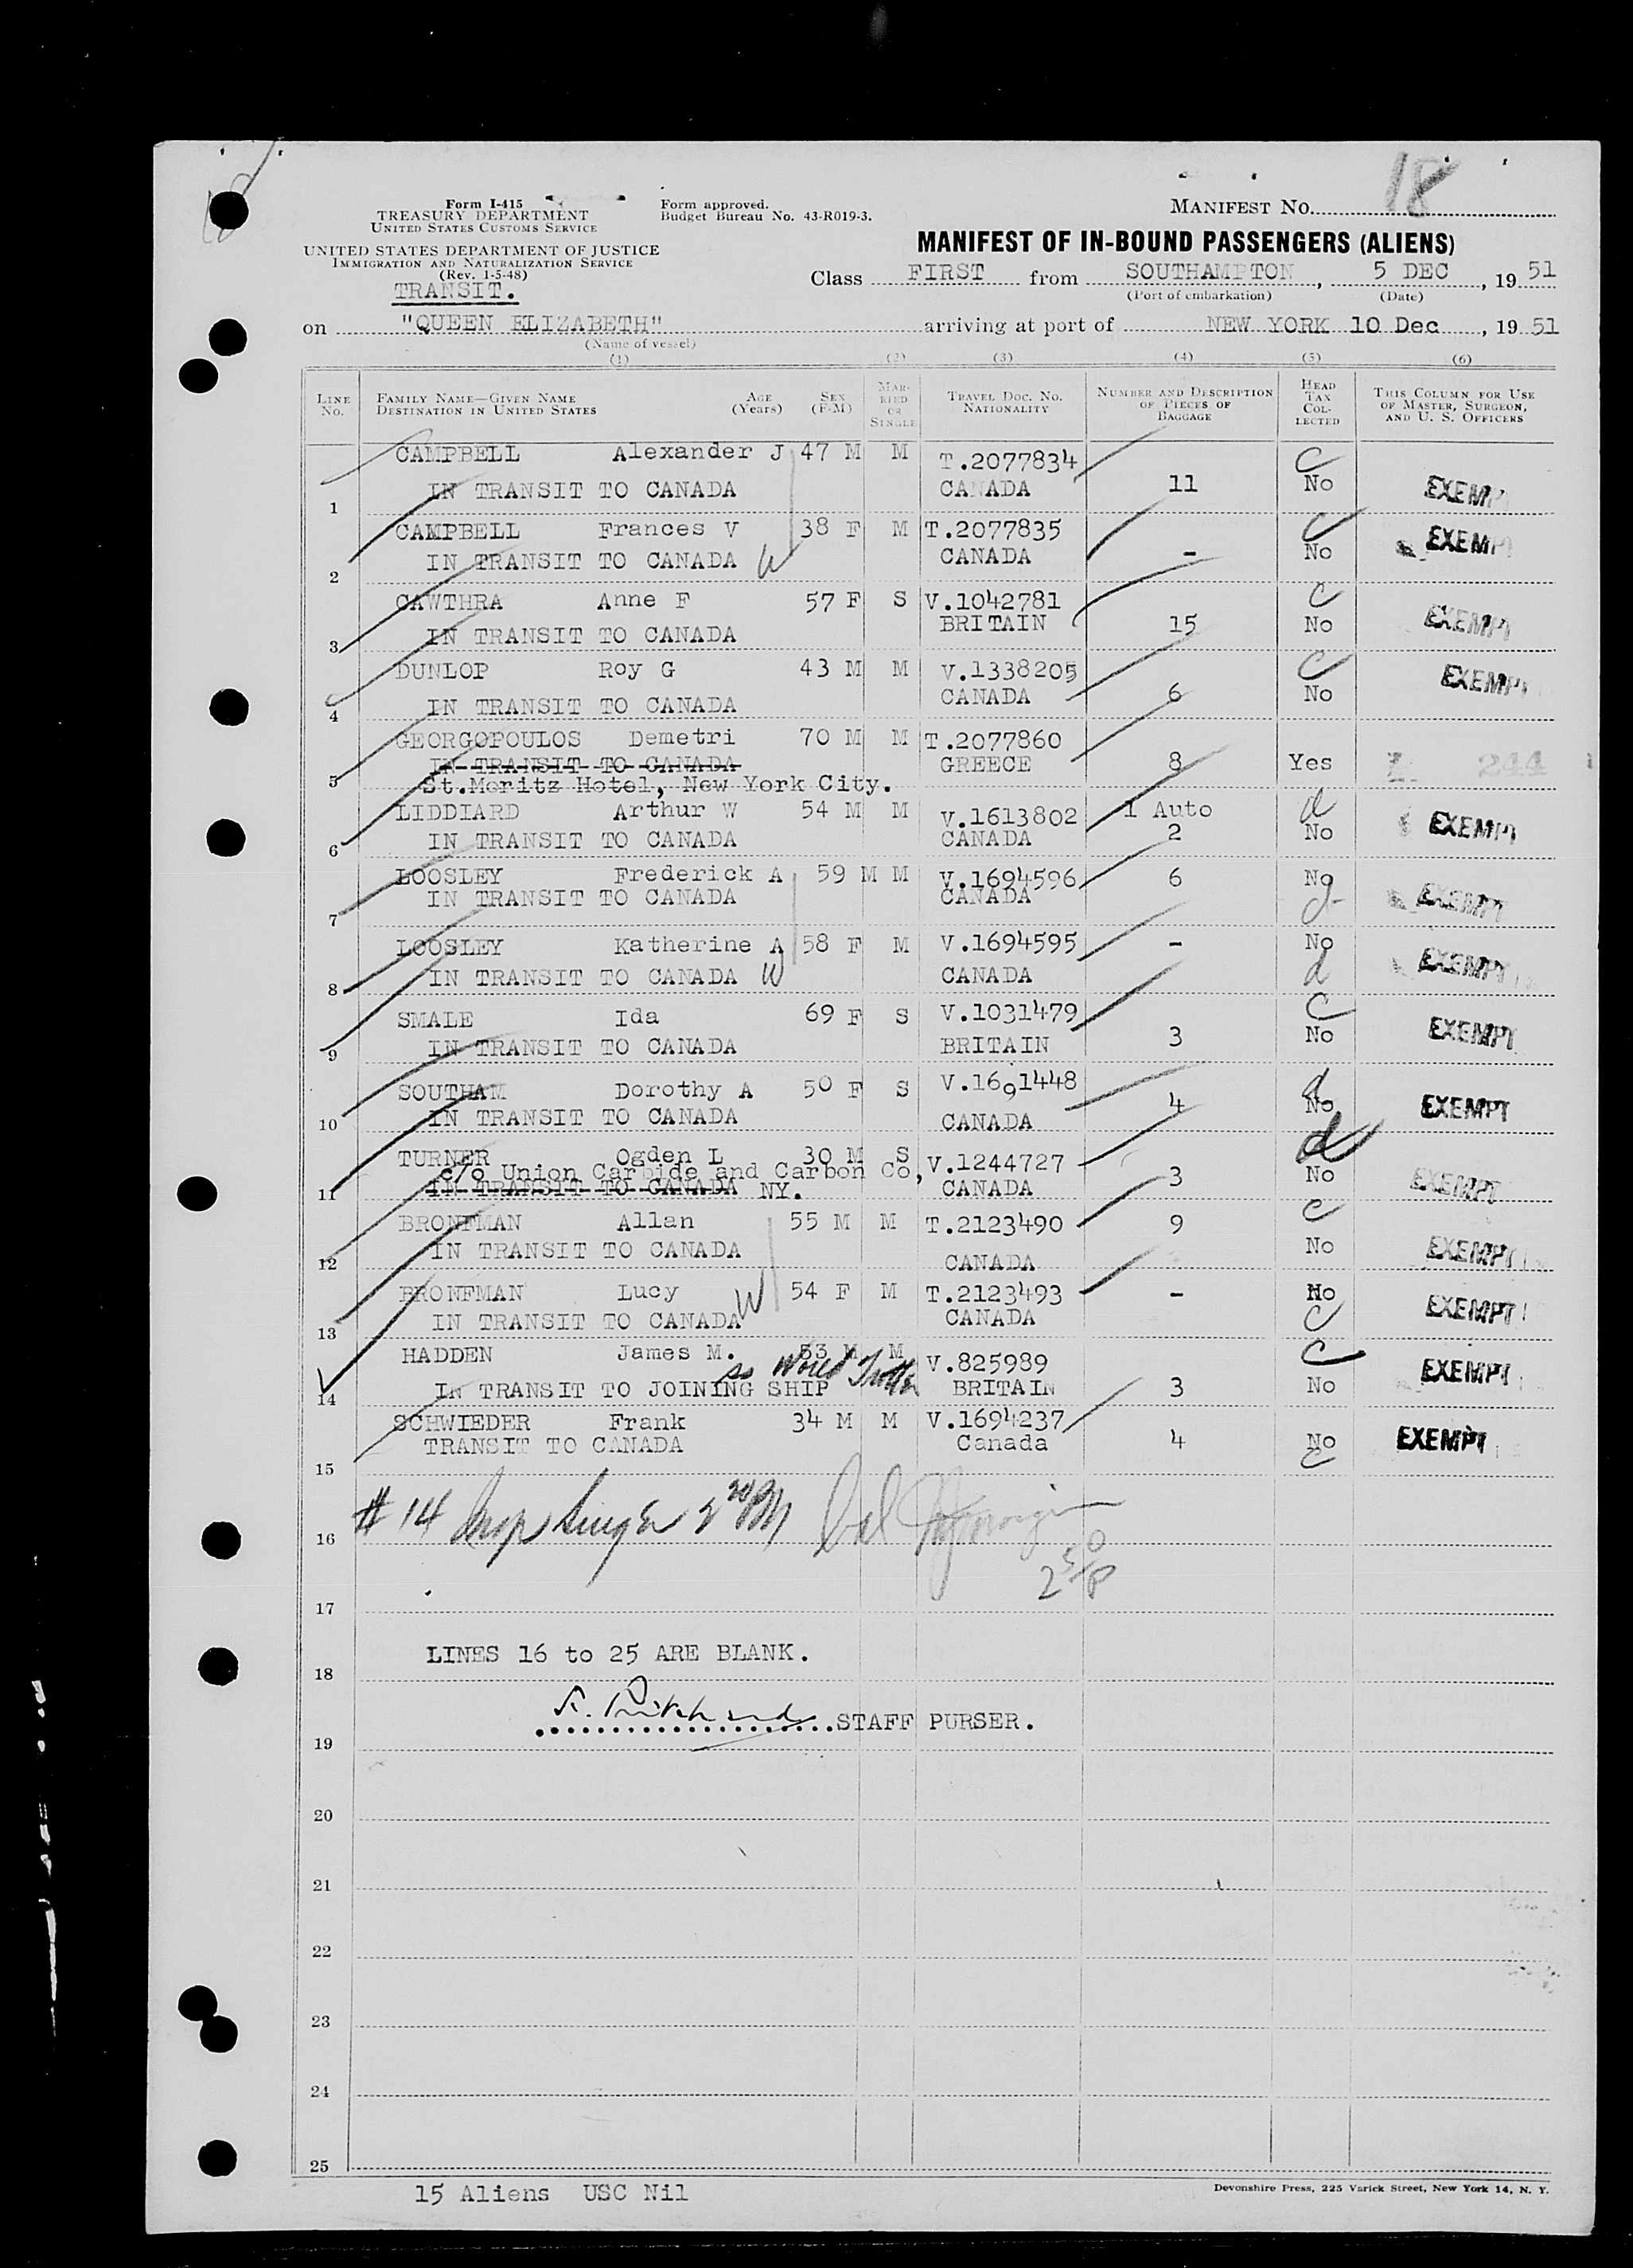 18
Form I-415
TREASURY DEPARTMENT
UNITED STATES CUSTOMS SERVICE
UNITED STATES DEPARTMENT OF JUSTICE
IMMIGRATION AND NATURALIZATION SERVICE
(Rev. 1-5-48)
TRANSIT.
Form approved.
Budget Bureau No. 43-R019-3.
MANIFEST NO.
MANIFEST OF IN-BOUND PASSENGERS (ALIENS)
Class FIRST from SOUTHAMPTON, 5 DEC, 19 51
(Port of embarkation) (Date)
on "QUEEN ELIZABETH" arriving at port of NEW YORK 10 Dec, 19 51
(Name of vessel)
(1) (2) (3) (4) (5) (6)
LINE NO. FAMILY NAME—GIVEN NAME DESTINATION IN UNITED STATES AGE (Years) SEX (F-M) MARRIED OR SINGLE TRAVEL DOC. NO. NATIONALITY NUMBER AND DESCRIPTION OF PIECES OF BAGGAGE HEAD TAX COLLECTED THIS COLUMN FOR USE OF MASTER, SURGEON, AND U. S. OFFICERS
CAMPBELL Alexander J 47 M M T.2077834 C
1 IN TRANSIT TO CANADA CANADA 11 No EXEMP
CAMPBELL Frances V 38 F M T.2077835 C
2 IN TRANSIT TO CANADA W CANADA - No EXEMP
CAWTHRA Anne F 57 F S V.1042781 C
3 IN TRANSIT TO CANADA BRITAIN 15 No EXEMPT
DUNLOP Roy G 43 M M V.1338205 C
4 IN TRANSIT TO CANADA CANADA 6 No EXEMPT
GEORGOPOULOS Demetri 70 M M T.2077860
IN TRANSIT TO CANADA GREECE 8 Yes 244
5 St.Moritz Hotel, New York City.
LIDDIARD Arthur W 54 M M V.1613802 1 Auto d
6 IN TRANSIT TO CANADA CANADA 2 No EXEMPT
LOOSLEY Frederick A 59 M M V.1694596 6 No
7 IN TRANSIT TO CANADA CANADA d EXEMPT
LOOSLEY Katherine A 58 F M V.1694595 - No
8 IN TRANSIT TO CANADA W CANADA d EXEMPT
SMALE Ida 69 F S V.1031479 C
9 IN TRANSIT TO CANADA BRITAIN 3 No EXEMPT
SOUTHAM Dorothy A 50 F S V.1691448 d
10 IN TRANSIT TO CANADA CANADA 4 No EXEMPT
TURNER Ogden L 30 M S V.1244727 d
c/o Union Carbide and Carbon Co,
11 IN TRANSIT TO CANADA NY. CANADA 3 No EXEMPT
BRONFMAN Allan 55 M M T.2123490 9 C
12 IN TRANSIT TO CANADA CANADA No EXEMPT
BRONFMAN Lucy 54 F M T.2123493 - No
13 IN TRANSIT TO CANADA W CANADA C EXEMPT
HADDEN James M. 53 M M V.825989 C
ss World
14 IN TRANSIT TO JOINING SHIP BRITAIN 3 No EXEMPT
SCHWIEDER Frank 34 M M V.1694237
15 TRANSIT TO CANADA Canada 4 No C EXEMPT
# 14
16
2 50/P
17
LINES 16 to 25 ARE BLANK.
18
STAFF PURSER.
19
20
21
22
23
24
25
15 Aliens USC Nil
Devonshire Press, 225 Varick Street, New York 14, N. Y.